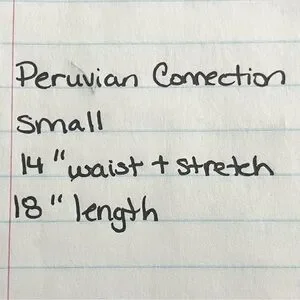 Peruvian Connection
small
14" waist + stretch
18" length